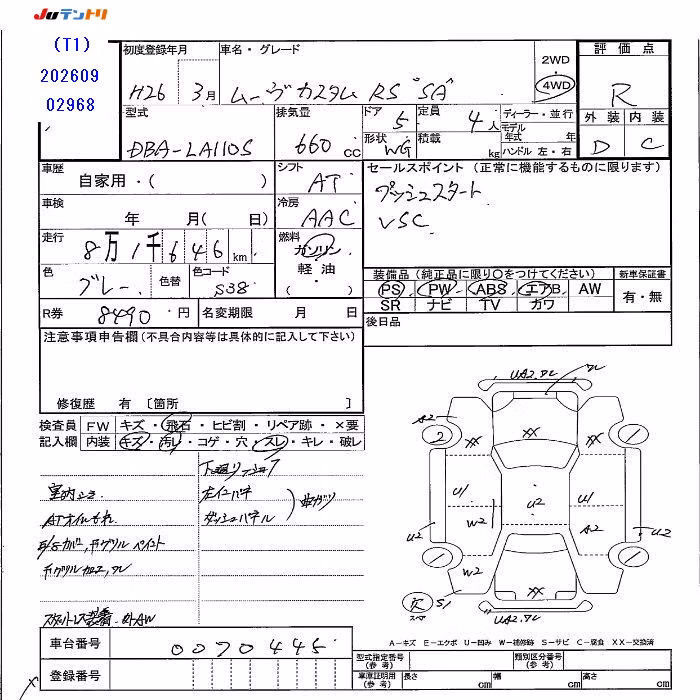 Juテントリ
(T1)
202609
02968
初度登録年月
H26 3月
車名・グレード
ムーヴカスタム RS "SA"
2WD
4WD
評価点
R
外装 内装
D C
型式
DBA-LA110S
排気量
660 cc
ドア
5
形状
WG
定員
4人
積載
kg
ディーラー・並行
モデル年式 年
ハンドル 左・右
車歴
自家用・( )
シフト
AT
セールスポイント(正常に機能するものに限ります)
プッシュスタート
VSC
車検
年 月( 日)
冷房
AAC
走行
8万1千646km
燃料
ガソリン
軽油
( )
色
グレー
色替
色コード
S38
装備品(純正品に限り〇をつけてください)
新車保証書
PS PW ABS エアB AW
SR ナビ TV カワ
有・無
R券
8490円
名変期限 月 日
後日品
注意事項申告欄(不具合内容等は具体的に記入して下さい)
修復歴 有〔箇所 〕
検査員記入欄
FW キズ・飛石・ヒビ割・リペア跡・×要
内装 キズ・汚レ・コゲ・穴・スレ・キレ・破レ
ATオイルもれ
ダッシュパネル
UA2.ワレ
ワレ
A2
2
XX
XX
XX
U1
U2
U1
W2
A2
U2
U2
W2
XX
欠
スペア
S1
UA2.ワレ
A-キズ E-エクボ U-凹み W-補修跡 S-サビ C-腐食 XX-交換済
車台番号
0070445
登録番号
型式指定番号(参考)
類別区分番号(参考)
車庫証明用(参考)
長さ cm 幅 cm 高さ cm